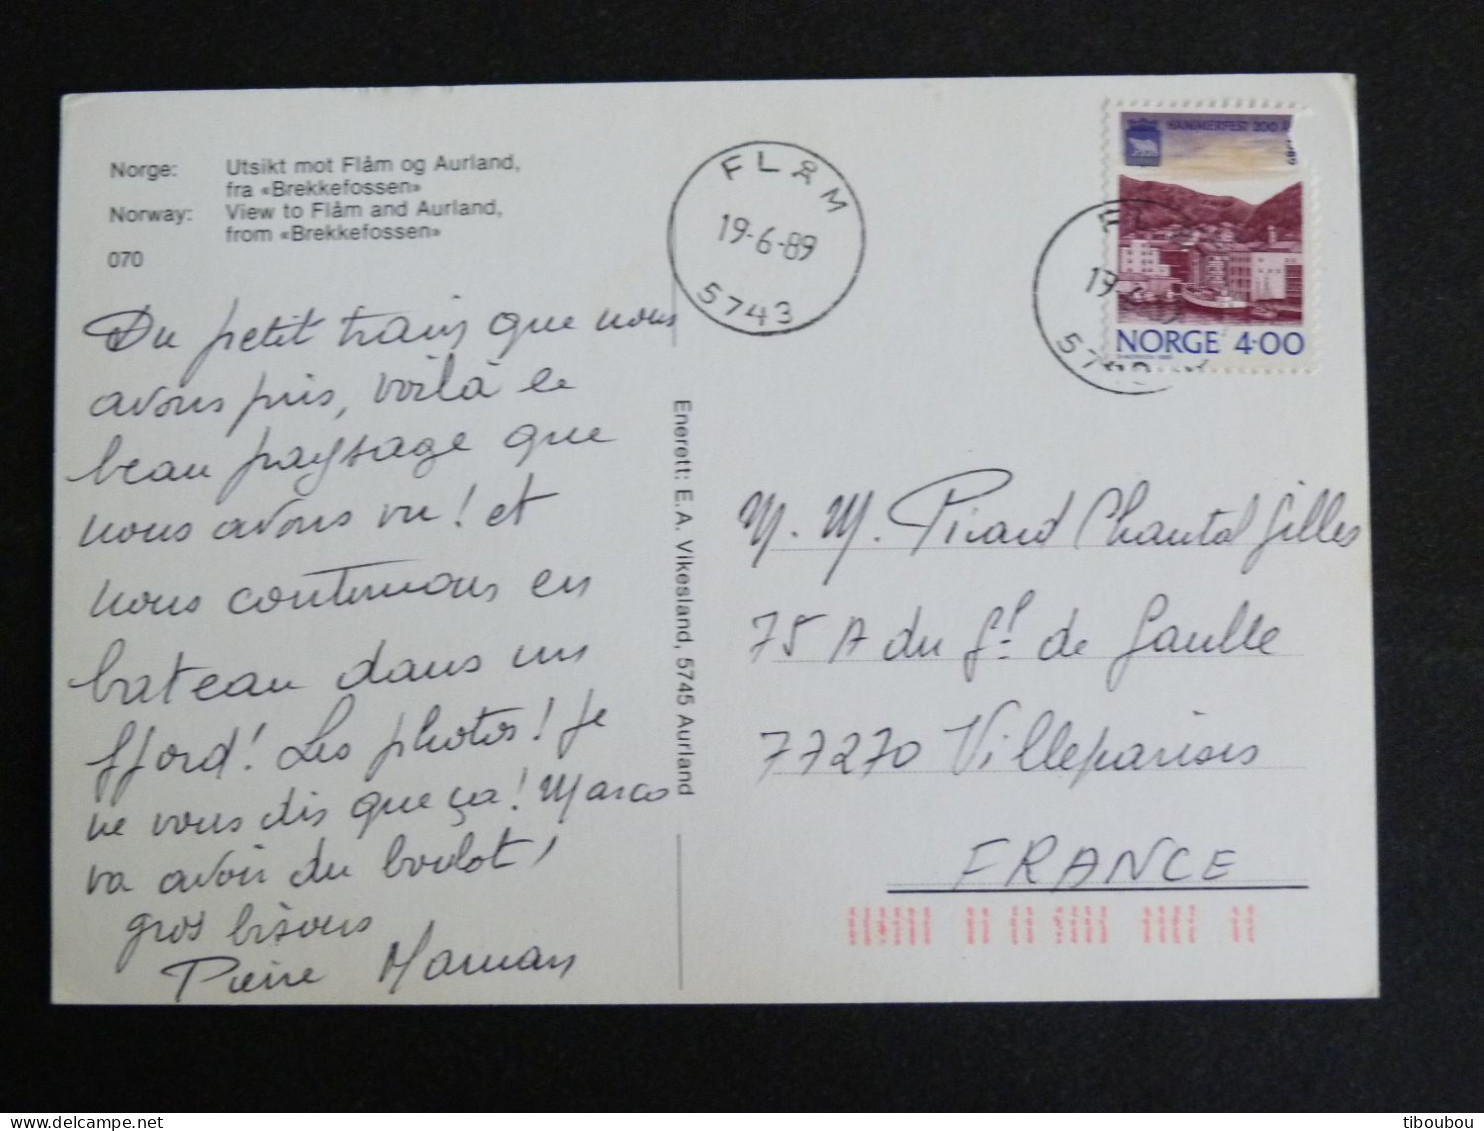 Norge: Utsikt mot Flåm og Aurland,
fra «Brekkefossen»
Norway: View to Flåm and Aurland,
from «Brekkefossen»
070
Du petit train que nous
avons pris, voilà le
beau paysage que
nous avons vu! et
nous continuons en
bateau dans un
fjord! Les photos! Je
ne vous dis que ça! Marco
va avoir du boulot!
gros bisous
Pierre Maman
Enerett: E.A. Vikesland, 5745 Aurland
FLÅM
19-6-89
5743
HAMMERFEST 200 Å
NORGE 4·00
M. M. Picard Chantal Gilles
75 A du Gl de Gaulle
77270 Villeparisis
FRANCE
tiboubou